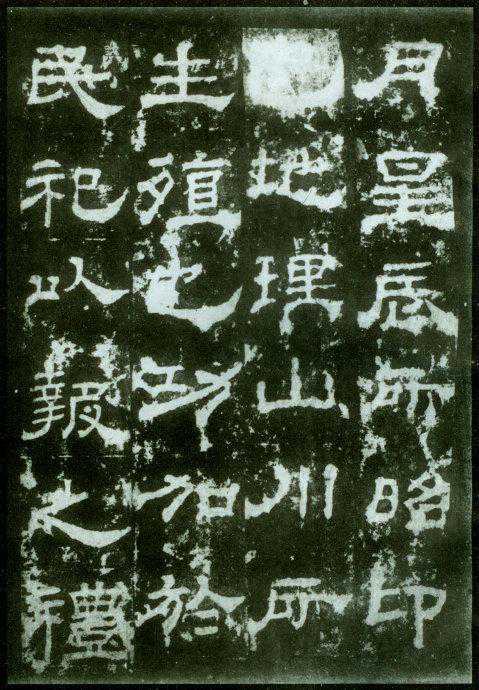 月星辰所昭印
地理山川所
生殖也功加於
民祀以報之禮